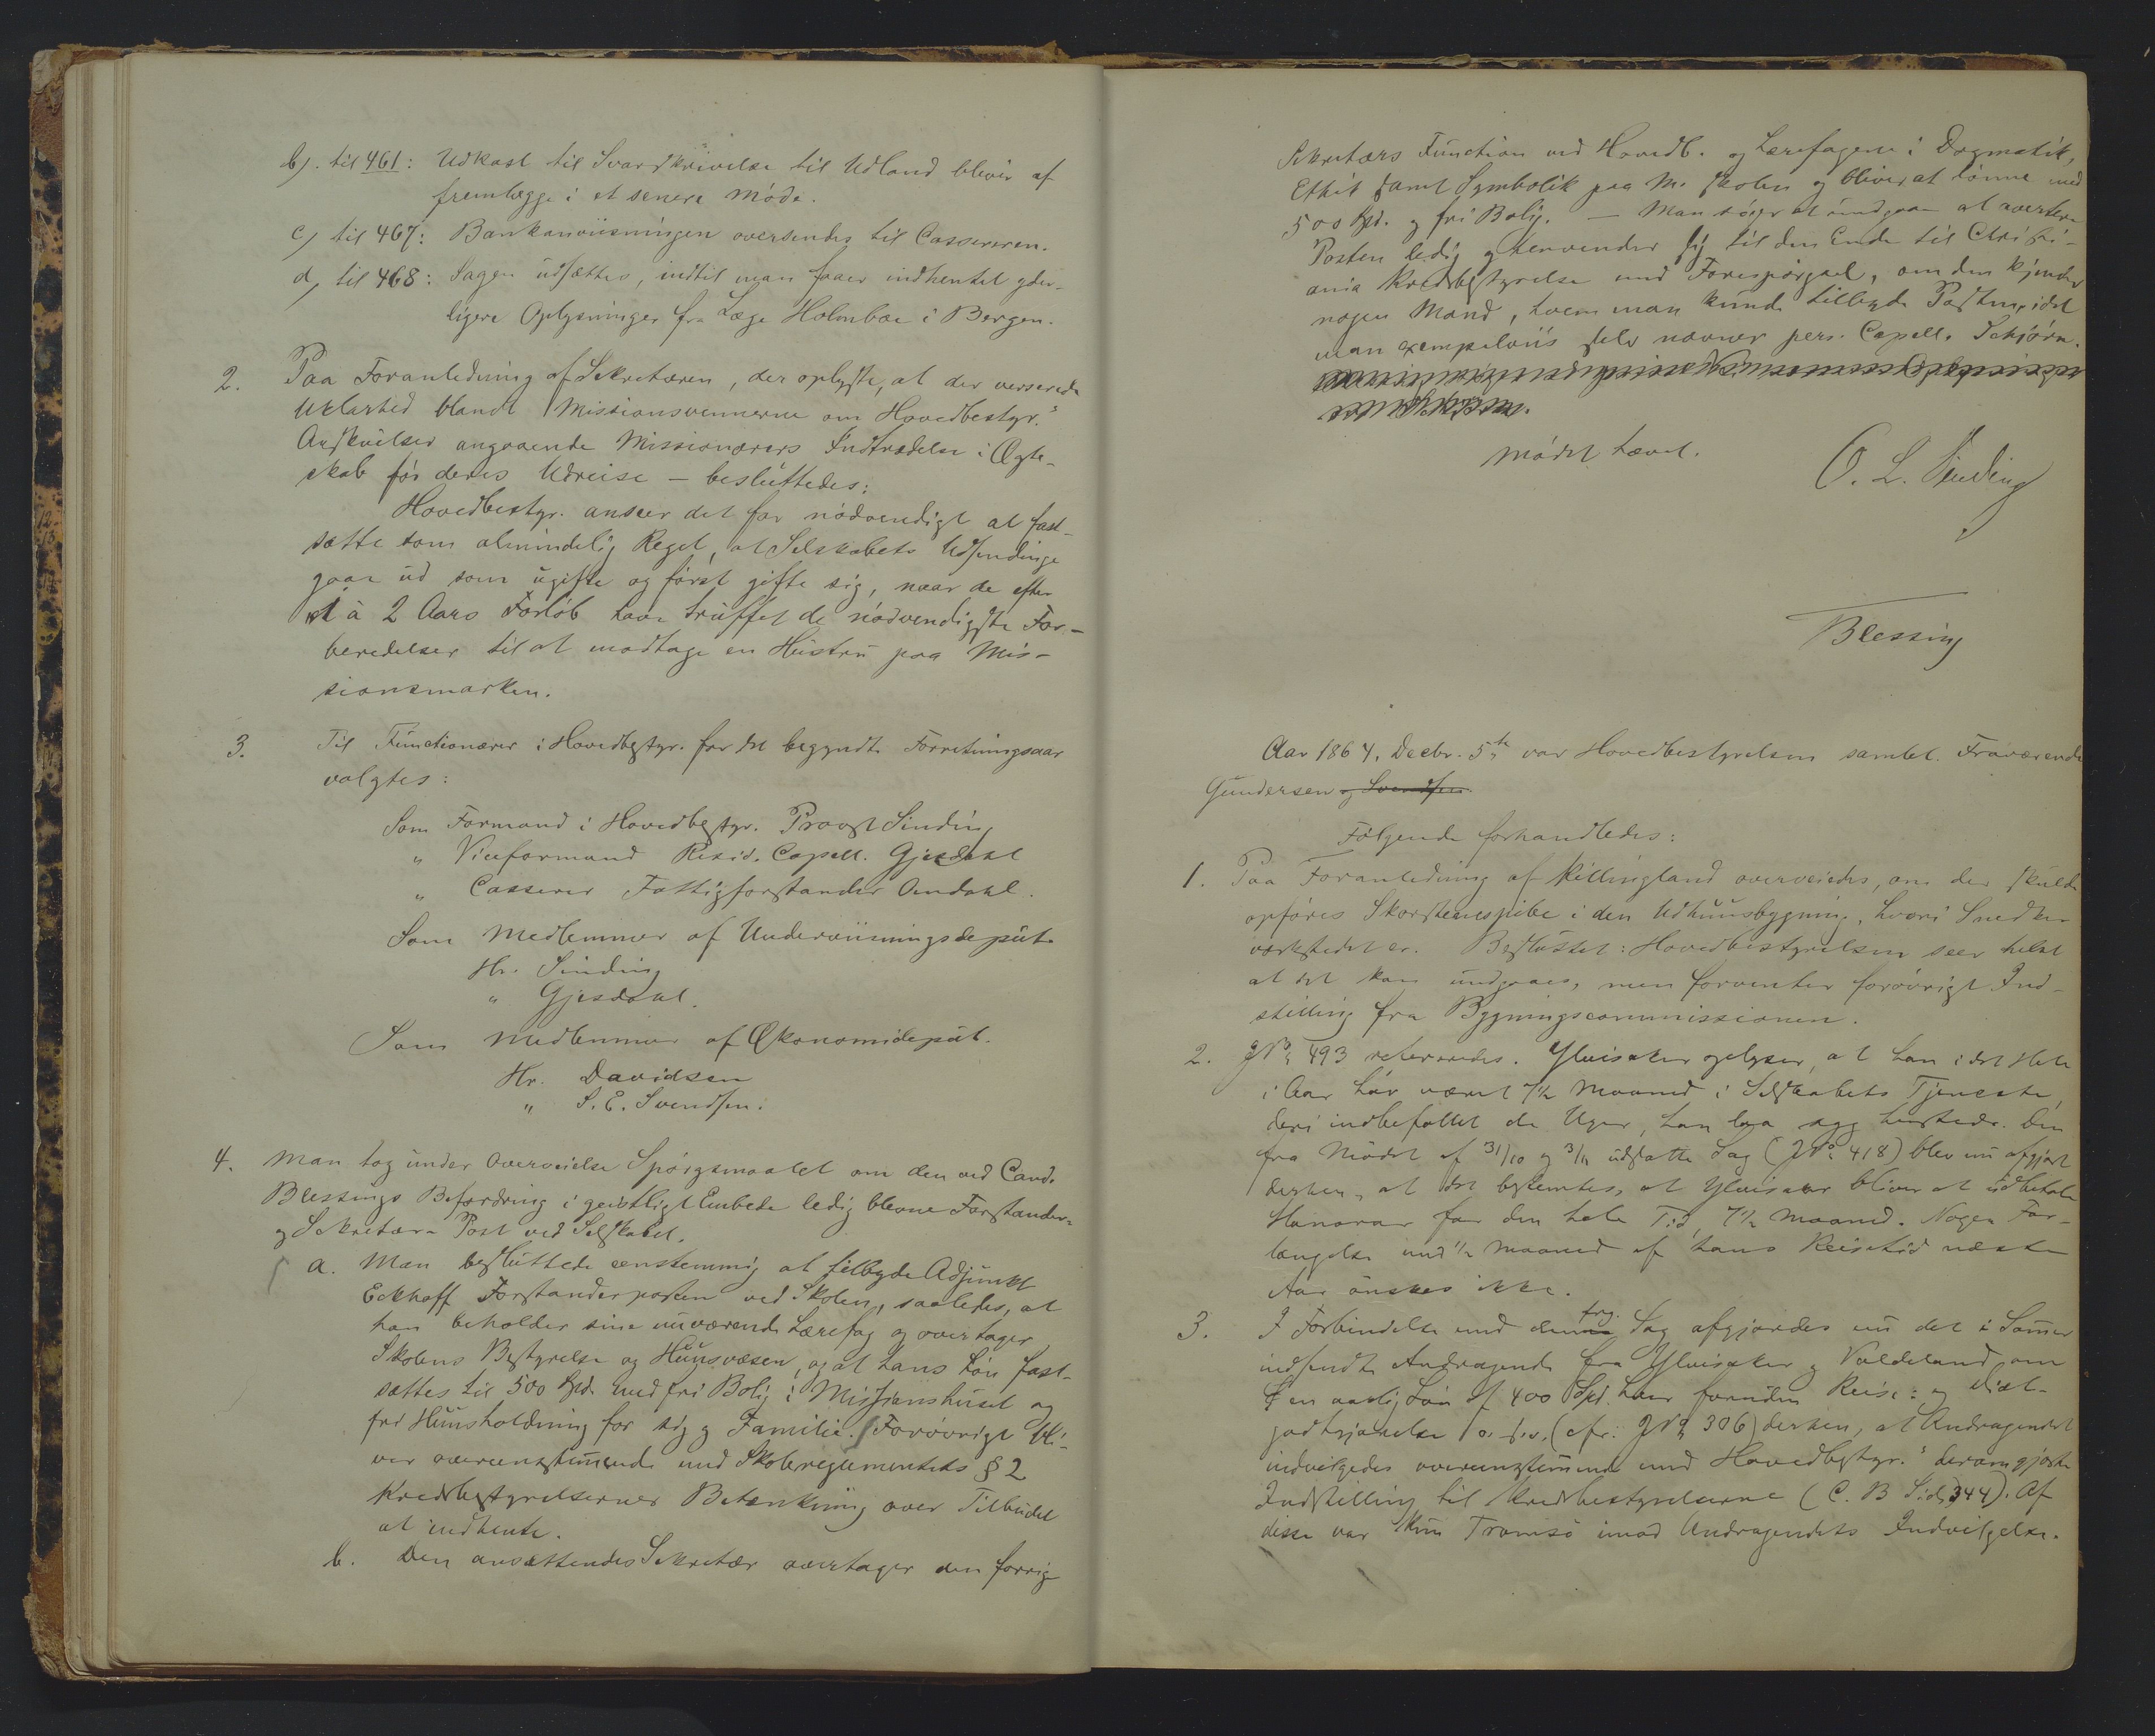 b). til 461: Udkast til Svarskrivelse til Udland bliver at
fremlægge i et senere Møde.
c) til 467: Bankanviisningen oversendes til Cassereren.
d, til 468: Sagen udsættes, indtil man faaer indhentet yder-
ligere Oplysninger fra Læge Holmboe i Bergen.
2. Paa Foranledning af Sekretæren, der oplyste, at der verserede
Uklarhed blandt Missionsvennerne om Hovedbestyr.s
Anskuelser angaaende Missionærers Indtrædelse i Ægte-
skab før deres Udreise – besluttedes:
Hovedbestyr. anseer det for nødvendigt at fast-
sætte som almindelig Regel, at Selskabets Udsendinge
gaar ud som ugifte og først gifte sig, naar de efter
1 à 2 Aars Forløb have truffet de nødvendigste For-
beredelser til at modtage en Hustru paa Mis-
sionsmarken.
3. Til Functionærer i Hovedbestyr. for det begyndte Forretningsaar
valgtes:
Som Formand i Hovedbestyr. Provst Sinding
" Viceformand Resid. Capell. Gjesdahl
" Casserer Fattigforstander Omdahl.
Som Medlemmer af Underviisningsdeput.
Hr. Sinding
" Gjesdahl.
Som Medlemmer af Økonomideput.
Hr. Davidsen
" S. E. Svendsen.
4. Man tog under Overveielse Spørgsmaalet om den ved Cand.
Blessings Befordring i geistligt Embede ledig blevne Forstander-
og Sekretær-Post ved Selskabet.
a. Man besluttede eenstemmig at tilbyde Adjunkt
Eckhoff Forstanderposten ved Skolen, saaledes, at
han beholder sine nuværende Lærefag og overtager
Skolens Bestyrelse og Huusvæsen, og at hans Løn fast-
sættes til 500 Spd. med fri Bolig i Missionshuset og
fri Huusholdning for sig og Familie. Forøvrigt bli-
ver overeensstemmende med Skolereglementets § 2
Kredsbestyrelsernes Betænkning over Tilbudet
at indhente.
b. Den ansættendes Sekretær overtager den forrige
Sekretærs Function ved Hovedb. og Lærefagene i Dogmatik,
Ethik samt Symbolik paa M. skolen og bliver at lønne med
500 Spd. og fri Bolig. – Man søger at undgaae at avertere
Posten ledig og henvender sig til den Ende til Christi-
ania Kredsbestyrelse med Forespørgsel, om den kjender
nogen Mand, hvem man kunde tilbyde Posten, idet
man exempelviis selv nævner pers. Capell. Schjørn.
Mødet hævet.
O. L. Sinding
Blessing
Aar 1864, Decbr. 5te var Hovedbestyrelsen samlet. Fraværende
Gundersen og Svendsen.
Følgende forhandledes:
1. Paa Foranledning af Killingland overveiedes, om der skulde
opføres Skorsteenspibe i den Udhuusbygning, hvori Snedker
værkstedet er. Besluttet: Hovedbestyrelsen seer helst
at det kan undgaaes, men forventer forøvrigt Ind-
stilling fra Bygningscommissionen.
2. JNo. 493 refereredes. Ylvisaker oplyser, at han i det Hele
i Aar har været 7½ Maaned i Selskabets Tjeneste,
deri indbefattet de Uger, han laa syg hernede. Den
fra Mødet af 31/10 og 3/11 udsatte Sag (JNo. 418) blev nu afgjort
derhen, at det bestemtes, at Ylvisaker bliver at udbetale
Honorar for den hele Tid, 7½ Maaned. Nogen For-
længelse med ½ Maaned af hans Reisetid næste
Aar ønskes ikke.
3. I Forbindelse med denne frg. Sag afgjordes nu det i Sommer
indsendte Andragende fra Ylvisaker og Valdeland om
en aarlig Løn af 400 Spd. hver foruden Reise: og Diæt-
godtgjørelse o. s. v. (cfr: JNo. 306) derhen, at Andragendet
indvilgedes overeensstemmende med Hovedbestyr.s derom gjorte
Indstilling til Kredsbestyrelserne (C. B Side 344). Af
disse var kun Tromsø imod Andragendets Indvilgelse.